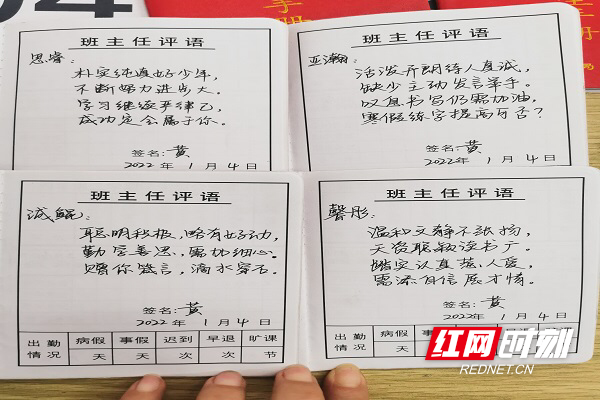 班主任评语
思睿：
朴实纯真好少年，
不断努力进步大。
学习继续严律己，
成功定会属于你。
签名：黄
2022年 1月 4日
班主任评语
亚瀚：
活泼开朗待人真诚，
缺少主动发言举手。
叹息书写仍需加油，
寒假练字提高可否？
签名：黄
2022年 1月 4日
班主任评语
诚鲲：
聪明积极，略有好动，
勤学善思，需加细心。
赠你箴言，滴水穿石。
签名：黄
2022年 1月 4日
出勤情况 病假 事假 迟到 早退 旷课
天 天 次 次 节
班主任评语
馨彤：
温和文静不张扬，
天资聪颖读书广。
踏实认真惹人爱，
需添自信展才情。
签名：黄
2022年 1月 4日
出勤情况 病假 事假
天 天
红网时刻
REDNET.CN